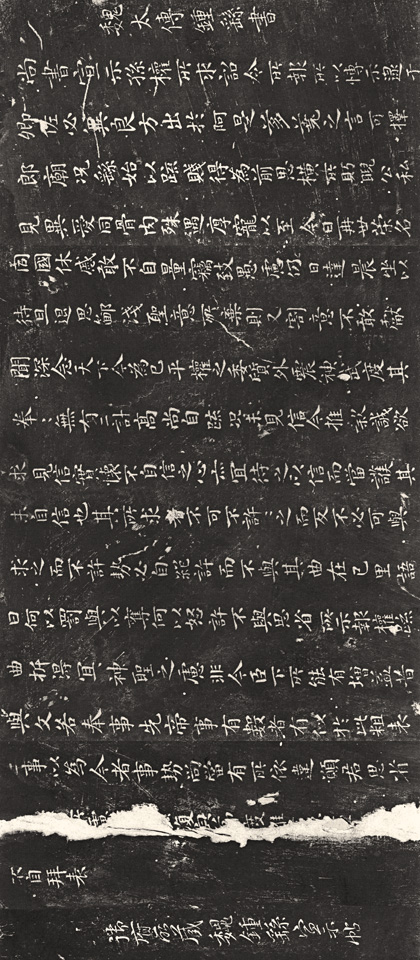 魏太傅鍾繇書
尚書宣示孫權所求詔令所報所以博示逮于
卿佐必冀良方出於阿是芻蕘之言可擇
郎廟況繇始以疏賤得為前恩橫所盼睨公私
見異愛同骨肉殊遇厚寵以至今日再世榮名
同國休慼敢不自量竊致愚慮仍日達晨坐以
待旦退思鄙淺聖意所棄則又割意不敢獻
聞深念天下今為已平權之委質外震神武度其
拳〻無有二計高尚自疏況未見信今推款誠欲
求見信實懷不自信之心亦宜待之以信而當護其
未自信也其所求者不可不許〻之而反不必可與
求之而不許勢必自絕許而不與其曲在己里語
曰何以罰與以奪何以怒許不與思省所示報權疏
曲折得宜〻神聖之慮非今臣下所能有增益昔
與文若奉事先帝事有數者有似於此粗表
二事以為今者事勢尚當有所依違願君思省
復 度唯
不自拜表
府所藏魏鍾繇宣示帖